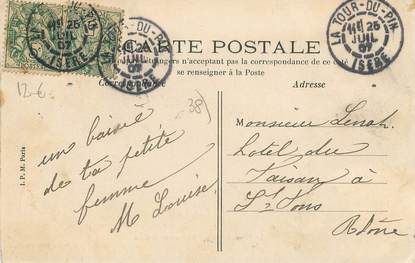 CARTE POSTALE
n'acceptent pas la correspondance de ce côté
se renseigner à la Poste
Correspondance
Adresse
LA TOUR-DU-PIN
25
JUIL
07
ISÈRE
LA TOUR-DU-PIN
25
JUIL
07
ISÈRE
LA TOUR-DU-PIN
25
JUIL
07
ISÈRE
12-6
38)
un baisé
de ta petite
femme
M Louise
I. P. M. Paris
Monsieur
hotel du
Faisan à
St Fons
Rhône